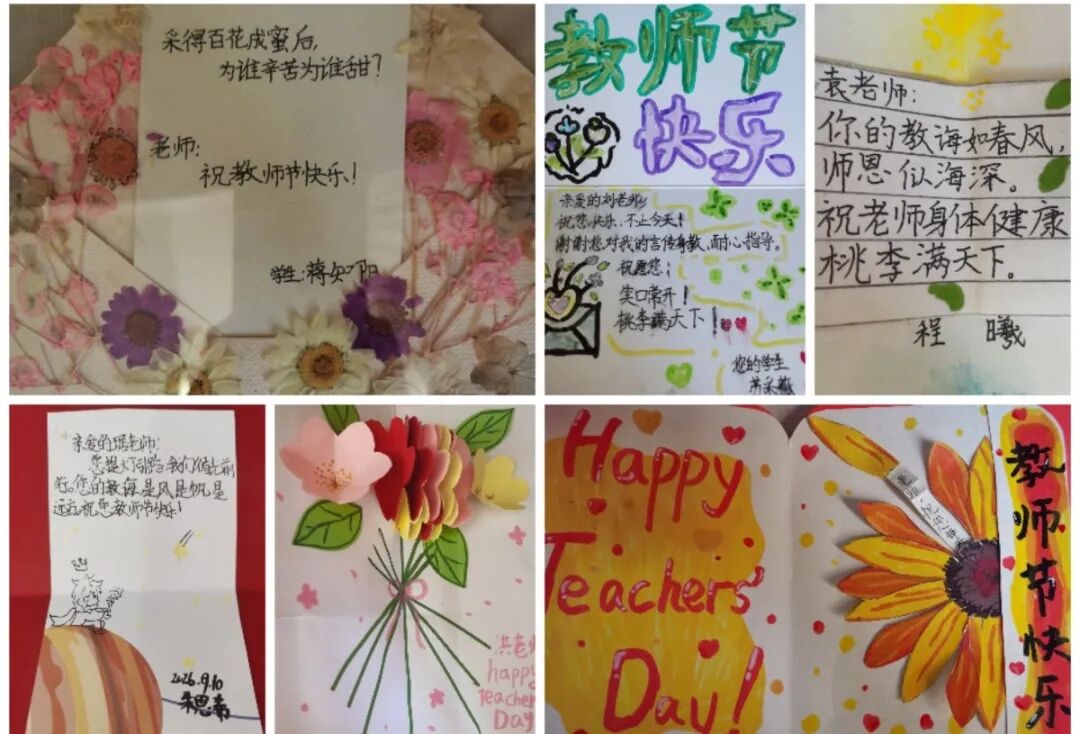 采得百花成蜜后,
为谁辛苦为谁甜?
老师:
祝教师节快乐!
学生:蒋知阳
教师节
快乐
亲爱的刘老师:
祝您快乐,不止今天!
谢谢您对我的言传身教,耐心指导。
祝愿您:
笑口常开!
桃李满天下!
您的学生
袁老师:
你的教诲如春风,
师恩似海深。
祝老师身体健康
桃李满天下。
程 曦
亲爱的 老师:
您提灯引路 我们循光前
行。您的教诲是风是帆是
远 祝您教师节快乐!
2026.9.10
朱恩希
洪老师
happy
Teacher
Day
Happy
Teachers'
Day!
教师节快乐